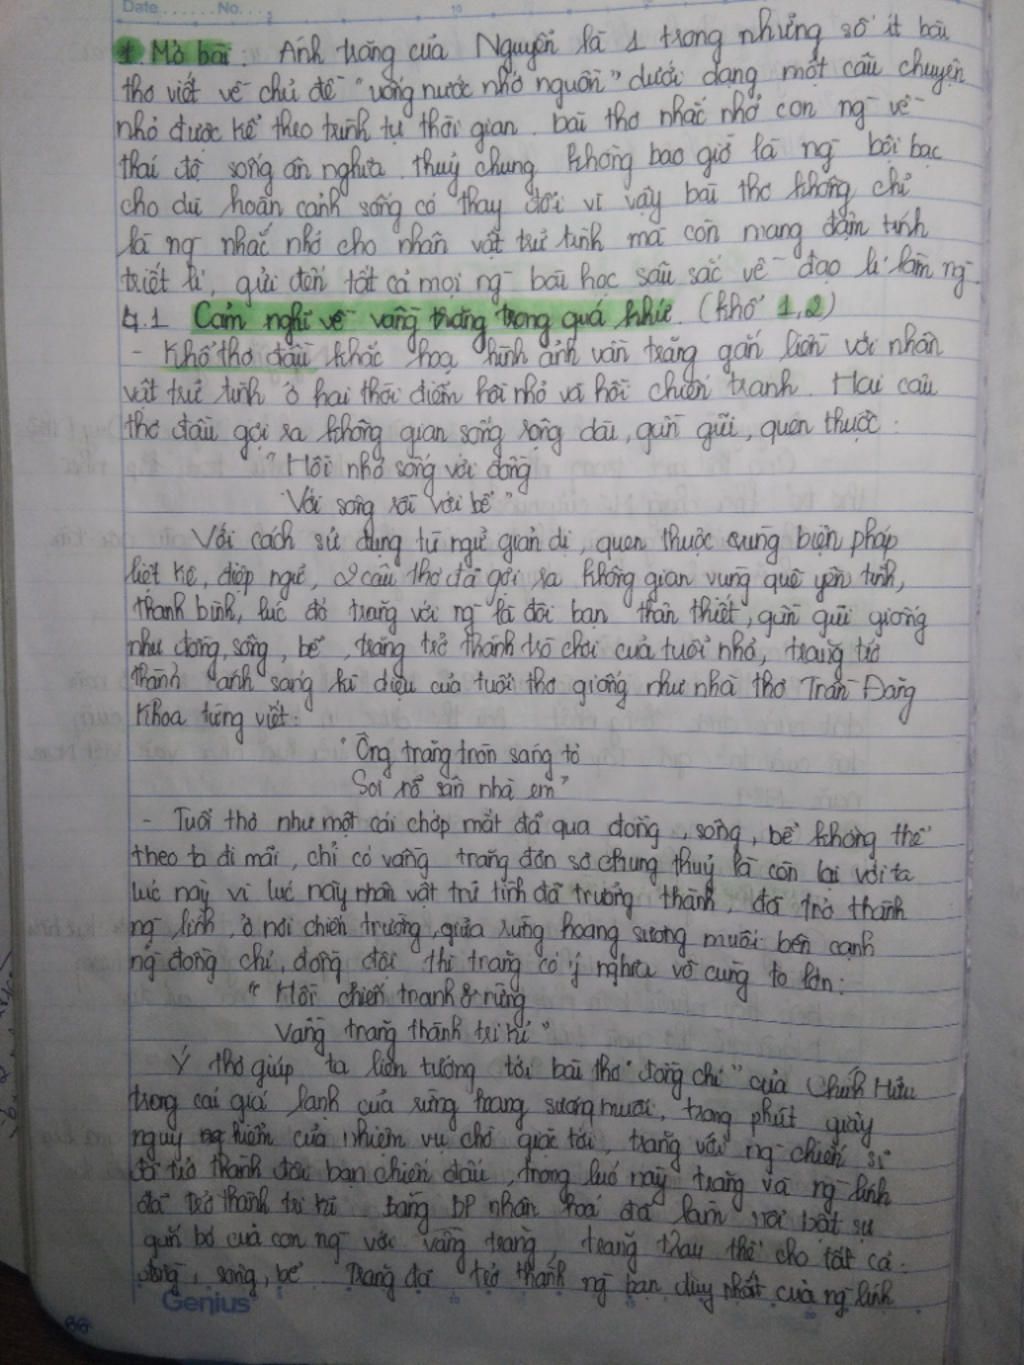 Date ....... No. ...
1. Mở bài : Ánh trăng của Nguyễn là 1 trong những số ít bài
thơ viết về chủ đề "uống nước nhớ nguồn" dưới dạng một câu chuyện
nhỏ được kể theo trình tự thời gian. bài thơ nhắc nhở con ng về
thái độ sống ân nghĩa thuỷ chung không bao giờ là ng bội bạc
cho dù hoàn cảnh sống có thay đổi vì vậy bài thơ không chỉ
là ng nhắc nhở cho nhân vật trữ tình mà còn mang đậm tính
triết lí, gửi đến tất cả mọi ng bài học sâu sắc về đạo lí làm ng
4.1 Cảm nghĩ về vầng trăng trong quá khứ. (khổ 1,2)
- Khổ thơ đầu khắc hoạ hình ảnh vần trăng gắn liền với nhân
vật trữ tình ở hai thời điểm hồi nhỏ và hồi chiến tranh. Hai câu
thơ đầu gợi ra không gian sống rộng dài, gần gũi, quen thuộc :
"Hồi nhỏ sống với đồng
Với sông rồi với bể"
Với cách sử dụng từ ngữ giản dị, quen thuộc cùng biện pháp
liệt kê, điệp ngữ, 2 câu thơ đã gợi ra không gian vùng quê yên tĩnh,
thanh bình, lúc đó trăng với ng là đôi bạn thân thiết, gần gũi giống
như đồng, sông, bể, trăng trở thành trò chơi của tuổi nhỏ, trăng trở
thành ánh sáng kì diệu của tuổi thơ giống như nhà thơ Trần Đăng
Khoa từng viết :
"Ông trăng tròn sáng tỏ
Soi rõ sân nhà em"
- Tuổi thơ như một cái chớp mắt đã qua đồng, sông, bể không thể
theo ta đi mãi, chỉ có vầng trăng đơn sơ chung thuỷ là còn lại với ta
lúc này vì lúc này nhân vật trữ tình đã trưởng thành, đã trở thành
ng lính, ở nơi chiến trường, giữa rừng hoang sương muối bên cạnh
ng đồng chí, đồng đội thì trăng có ý nghĩa vô cùng to lớn :
"Hồi chiến tranh ở rừng
Vầng trăng thành tri kỉ"
Ý thơ giúp ta liên tưởng tới bài thơ "đồng chí" của Chính Hữu
trong cái giá lạnh của rừng hoang sương muối, trong phút giây
nguy hiểm của nhiệm vụ chờ giặc tới, trăng với ng chiến sĩ
đã trở thành đôi bạn chiến đấu, trong lúc này trăng và ng lính
đã trở thành tri kỉ bằng BP nhân hoá đã làm nổi bật sự
gắn bó của con ng với vầng trăng, trăng thay thế cho tất cả
đồng, sông, bể. Trăng đã trở thành ng bạn duy nhất của ng lính
Genius